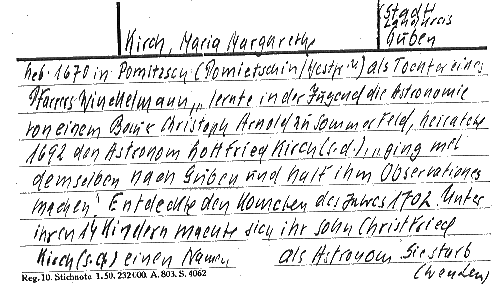 Stadt
Landkreis
Guben
Kirch, Maria Margarethe
Geb. 1670 in (Pomietschin/Westpr.) als Tochter eines
Pfarrers Winckelmann, „lernte in der Jugend die Astronomie
von einem Christoph Arnold zu Sommerfeld, heiratete
1692 den Astronom Gottfried Kirch (s.d.), „ging mit
demselben nach Guben und half ihm Observationes
machen“. Entdeckte den Kometen des Jahres 1702. Unter
ihren 14 Kindern machte sich ihr Sohn Christfried
Kirch (s.d.) einen Namen als Astronom Sie starb
(wenden)
Reg. 10. Stichnote 1. 50. 232000. A. 803. S. 4062